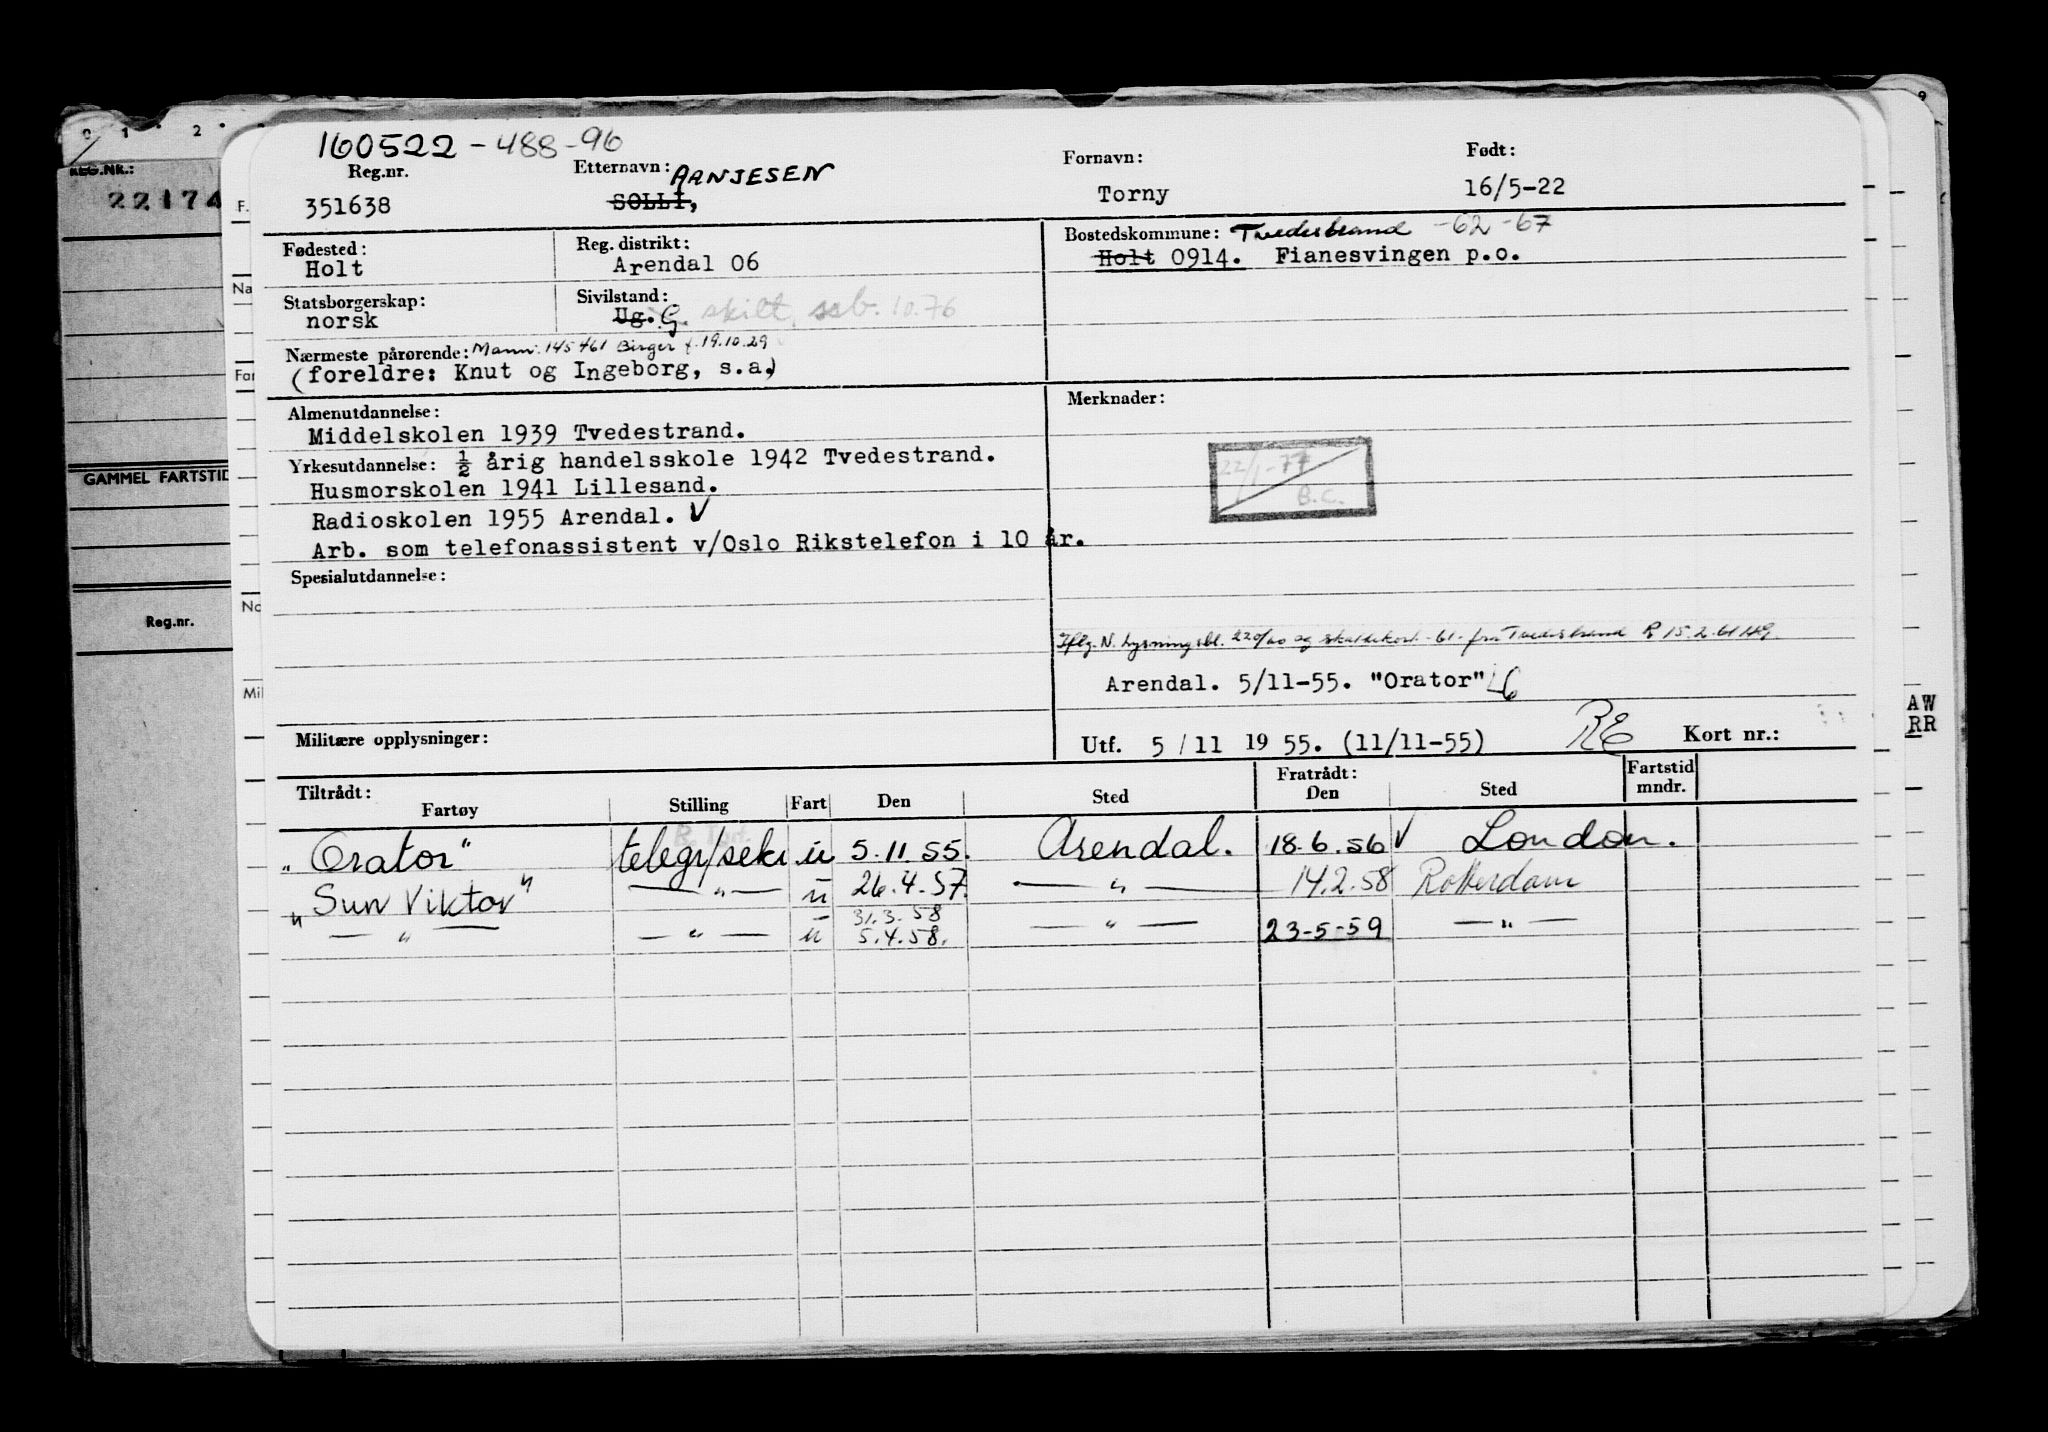 160522-488-96
Reg.nr. Etternavn: AANJESEN Fornavn: Født:
351638 SOLLI, Torny 16/5-22
Fødested: Reg. distrikt: Bostedskommune: Tvedestrand -62 -67
Holt Arendal 06 Holt 0914. Fianesvingen p.o.
Statsborgerskap: Sivilstand:
norsk Ug. G. skilt, ssb. 10.76
Nærmeste pårørende: Mann: 145461 Birger f. 19.10.29
(foreldre: Knut og Ingeborg, s.a.)
Almenutdannelse: Merknader:
Middelskolen 1939 Tvedestrand.
Yrkesutdannelse: ½ årig handelsskole 1942 Tvedestrand.
22/1-77
B.C.
Husmorskolen 1941 Lillesand.
Radioskolen 1955 Arendal. V
Arb. som telefonassistent v/Oslo Rikstelefon i 10 år.
Spesialutdannelse:
Iflg. N. Lysningsbl. 220/60 og skattekort -61- fra Tvedestrand R 15.2.61
Arendal. 5/11-55. "Orator"
Militære opplysninger: Utf. 5/11 1955. (11/11-55) RE Kort nr.:
Tiltrådt: Fratrådt: Fartstid
Fartøy Stilling Fart Den Sted Den Sted mndr.
"Orator" telegr/sekr u 5.11.55. Arendal. 18.6.56 V London.
"Sun Viktor" —"— u 26.4.57. —"— 14.2.58 Rotterdam
31.3.58
—"— —"— u 5.4.58. —"— 23-5-59 —"—
0 1 2
REG.NR.:
22174
GAMMEL FARTSTID
Reg.nr.
F.
Na
Far
No
Mil
9
AW
RR